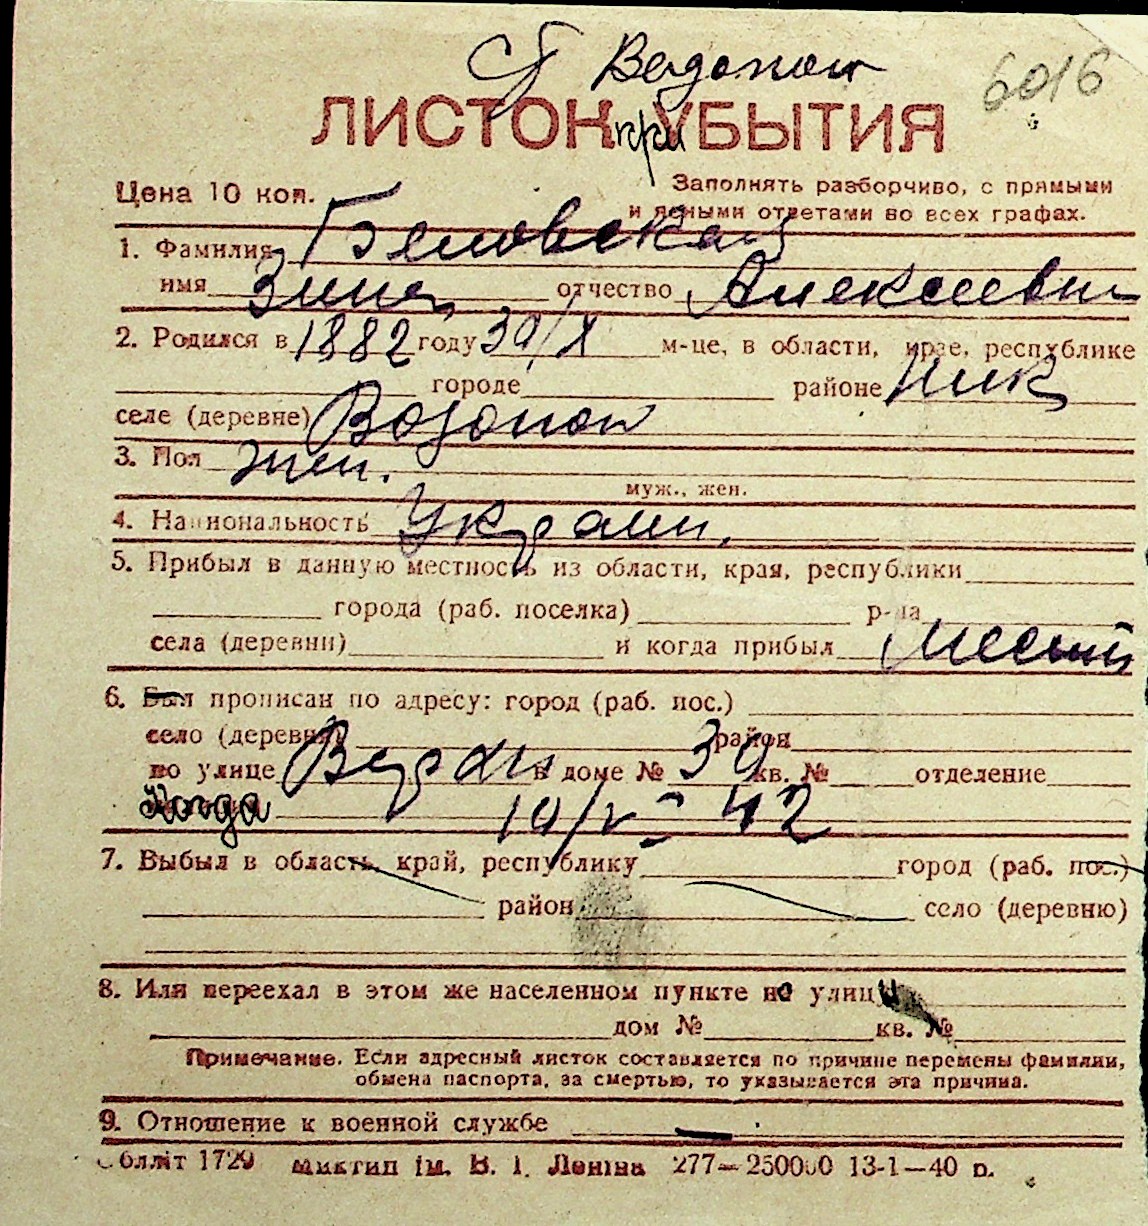 6016
ЛИСТОК УБЫТИЯ
при
Цена 10 коп. Заполнять разборчиво, с прямыми
и ясными ответами во всех графах.
1. Фамилия Беловская
имя Зина отчество Алексеевн
2. Родился в 1882 году 30/X м-це, в области, крае, республике
городе районе Ник
селе (деревне) Водопой
3. Пол жен.
муж., жен.
4. Национальность Украин.
5. Прибыл в данную местность из области, края, республики
города (раб. поселка) р-на
села (деревни) и когда прибыл Месный
6. Был прописан по адресу: город (раб. пос.)
село (деревня) район
по улице в доме № 39 кв. № отделение
Когда 10/V - 42
7. Выбыл в область, край, республику город (раб. пос.)
район село (деревню)
8. Или переехал в этом же населенном пункте на улицу
дом № кв. №
Примечание. Если адресный листок составляется по причине перемены фамилии,
обмена паспорта, за смертью, то указывается эта причина.
9. Отношение к военной службе —
Обллiт 1729 Миктип iм. В. I. Ленiна 277—250000 13-1—40 р.